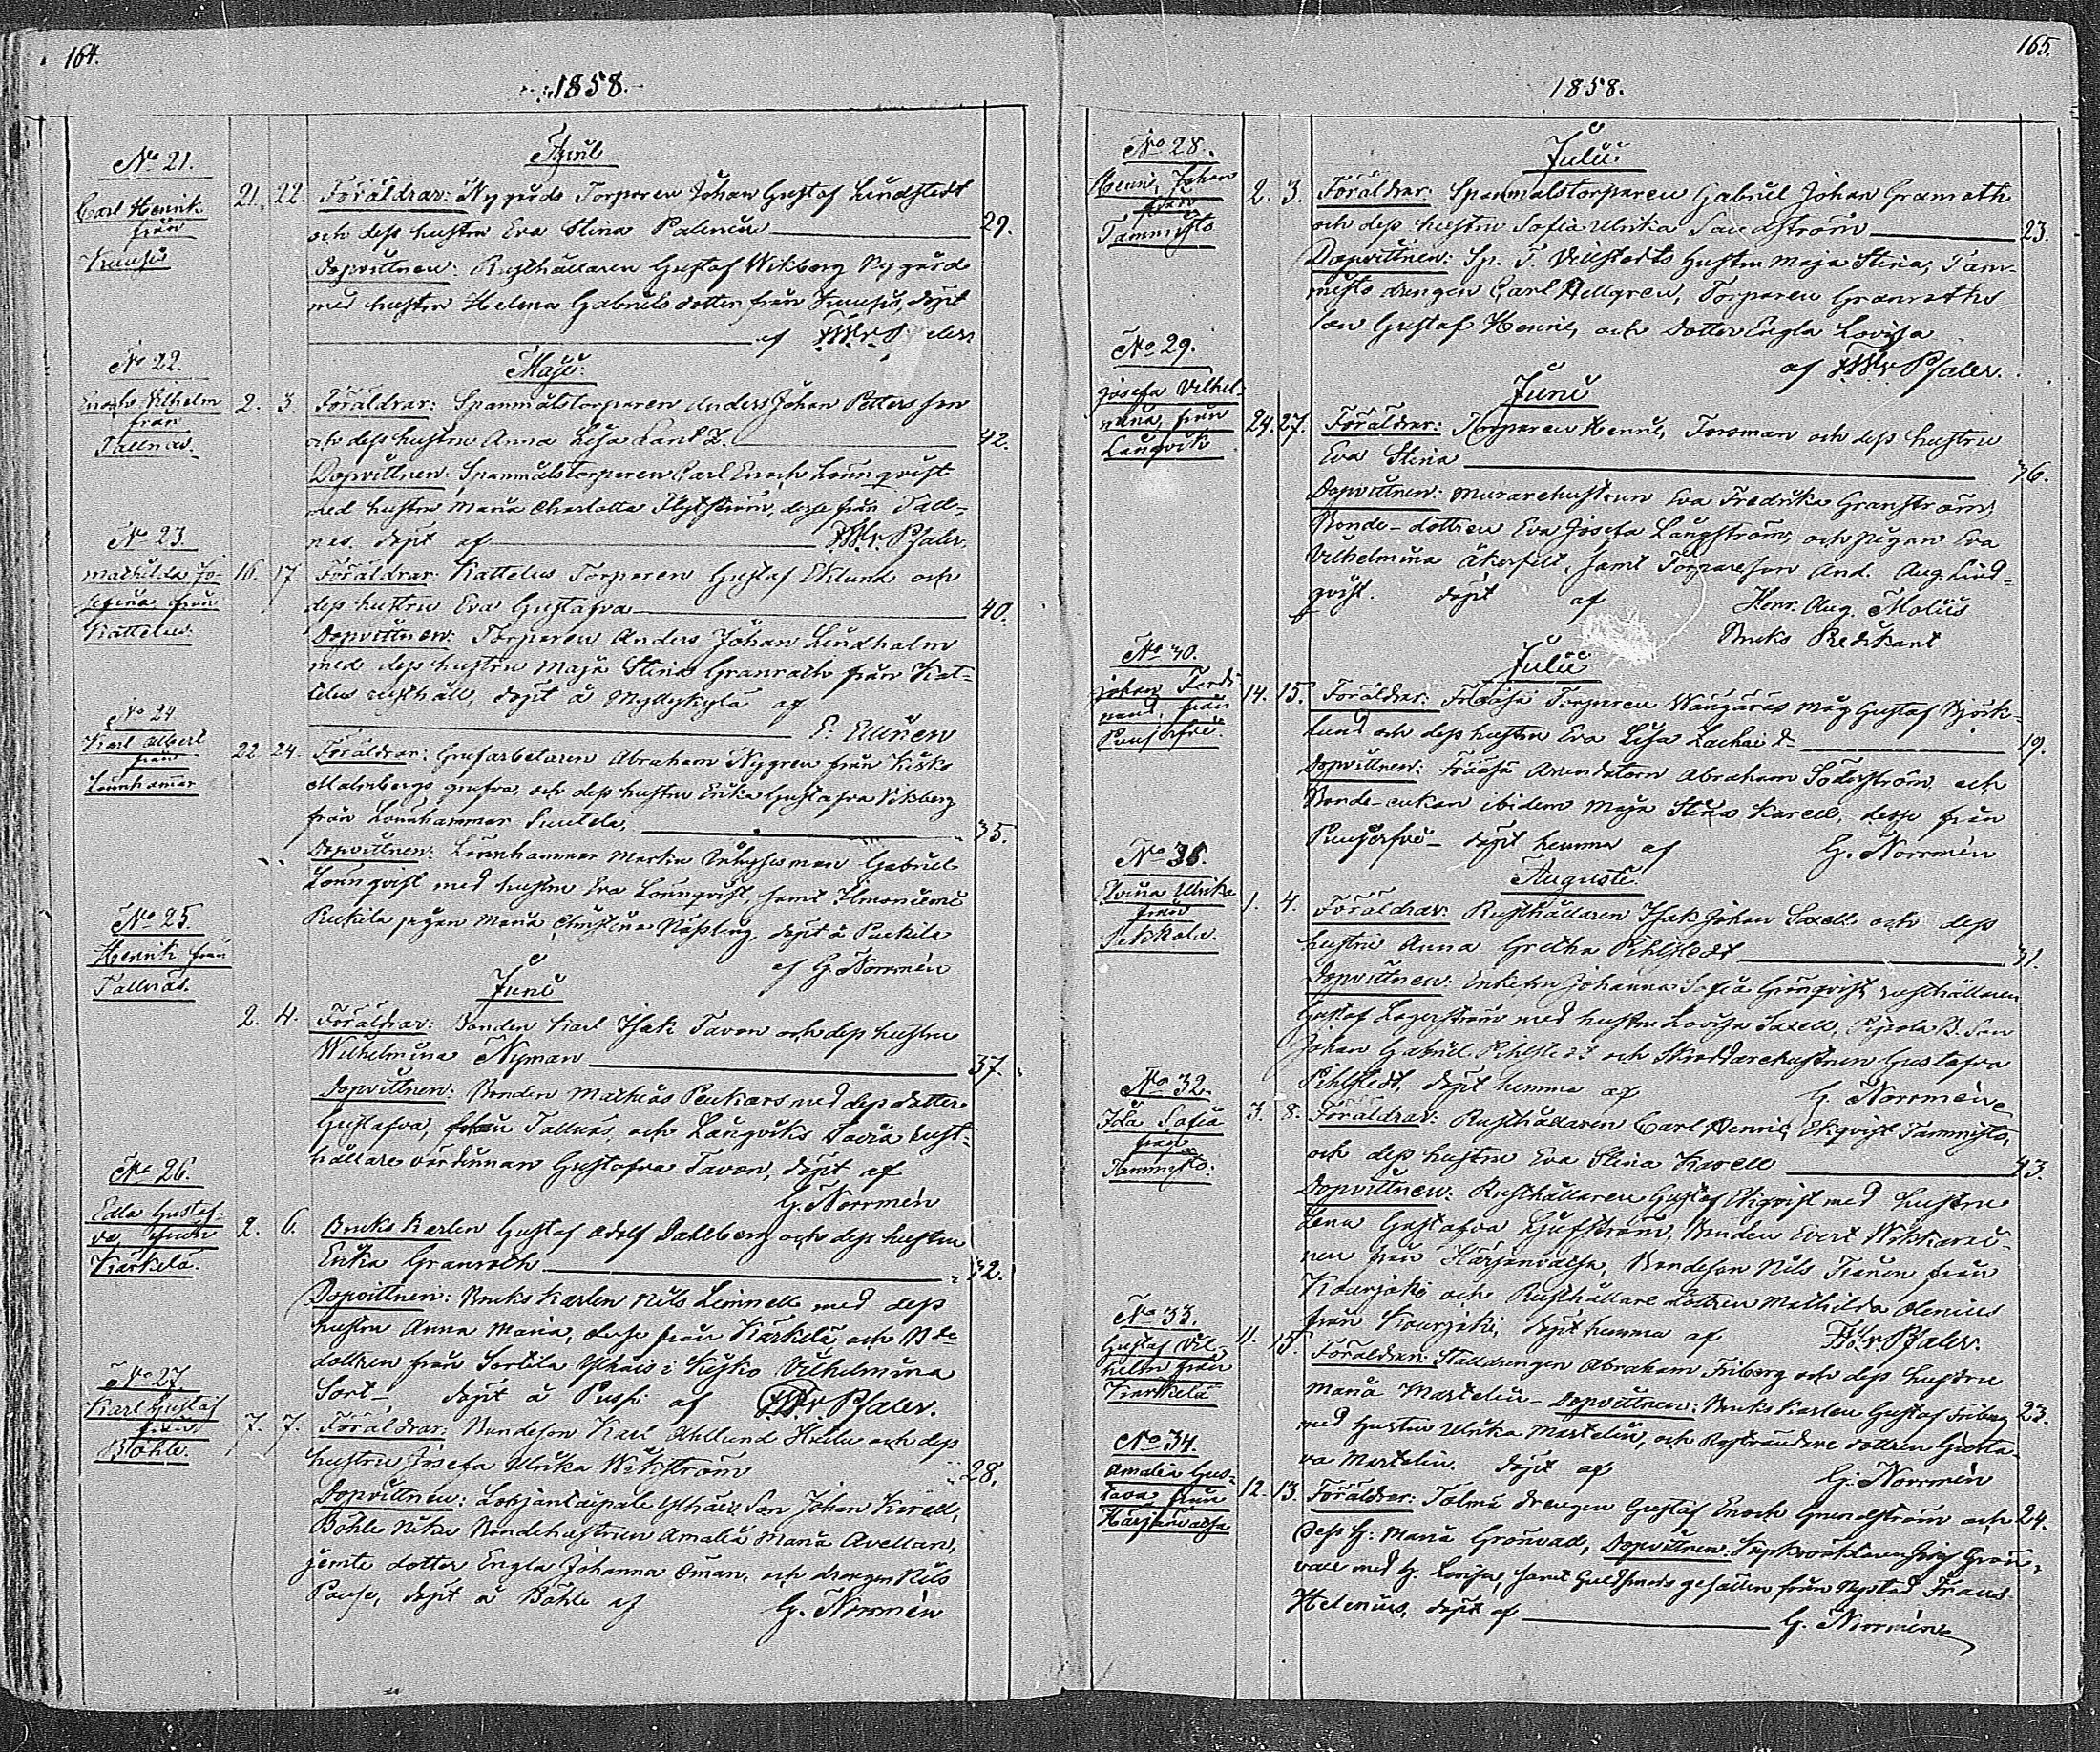 164.
1858.
April
No 21.
Carl Henrik
från
21. 22. Föräldrar: Nygårds Torparen Johan Gustaf Lindstedt
och dess hustru Eva Stina Palenius 29.
Dopvittnen: Rusthållaren Gustaf Wikberg Nygård
med hustru Helena Gabrielsdotter från döpt
af v. Pfaler
Maji
No 22.
Enoch Vilhelm
från
Tallnäs.
2. 3. Föräldrar: Spanmålstorparen Anders Johan Petters son
och dess hustru Anna Lisa 42.
Dopvittnen: Spanmålstorparen Carl Enoch Lönnqvist
med hustru Maria Charlotta desse från Tall-
nes. döpt af v. Pfaler.
No 23.
Mathilda Jo-
sefina från
Kattelus.
16. 17 Föräldrar: Kattelus Torparen Gustaf Eklund och
dess hustru Eva Gustafva 40.
Dopvittnen: Torparen Anders Johan Lindholm
med dess hustru Maja Stina Granroth från Kat-
telus rusthåll, döpt å Myllykylä af
E. Ellinen
No 24
Karl Albert
från
Lönnhammar
22 24. Föräldrar: Grufarbetaren Abraham Nygren från Kisko
Malmbergs grufva, och dess hustru Erika Gustafva Vikberg
från Lönnhammar 35.
Dopvittnen: Lönnhammar Gabriel
Lönnqvist med hustru Eva Lönnqvist, samt
pigan Maria Christina döpt å
af G. Norrmén
Juni
No 25.
Henrik från
Tallnäs.
2. 4. Föräldrar: Bonden Karl Isak Tavon och dess hustru
Wilhelmina Nyman 37.
Dopvittnen: Bonden Mathias med dess dotter
Gustafva, Tallnäs, och Långviks rust-
hållare värdinnan Gustafva Tavon, döpt af
G. Norrmén
No 26.
Edla Gustaf-
va, från
Kärkelä.
2. 6. Bruks Karlen Gustaf Adolf Dahlberg och dess hustru
Erika Granroth 32.
Dopvittnen: Bruks Karlen Nils Linnell med dess
hustru Anna Maria, desse från Kärkelä och Bde
dottren från Sortila i Kisko Vilhelmina
Sort-, döpt å af v. Pfaler.
No 27
Karl Gustaf
från
Böhle.
7. 7. Föräldrar: Bondeson Karl och dess
hustru Josefa Ulrika Wikström 28.
Dopvittnen: Son Johan Karell,
Böhle Bondehustrun Amalia Maria Avellan,
jemte dotter Engla Johanna Öman, och drengen Nils
döpt å Böhle af G. Norrmén
165.
1858.
Julii
No 28.
Henric Johan
från
Tammisto
2. 3. Föräldrar: Spanmålstorparen Gabriel Johan Granroth
och dess hustru Sofia Ulrika Sandström 23.
Dopvittnen: Sp. T. hustru Maja Stina, Tam-
misto drengen Carl Hellgren, Torparen Granroths
son Gustaf Henric, och dotter Engla Lovisa
af v. Pfaler.
Juni
No 29.
Josefa Vilhel-
mina, från
Långvik
24. 27. Föräldrar: Torparen Henric Forsman och dess hustru
Eva Stina 36.
Dopvittnen: Murarehustrun Eva Fredrika Granström,
Bonde-dottren Eva Josefa Långström, och pigan Eva
Vilhelmina Åkerfelt, samt Torpareson And. Aug. Lind-
qvist. döpt af Henr. Aug. Molin
Bruks Predikant
Julii
No 30.
Johan Ferdi-
nand, från
14. 15. Föräldrar: Torparen måg Gustaf Björk-
lund och dess hustru Eva Lisa 19.
Dopvittnen: Arrendatorn Abraham Söderström, och
Bonde-enkan ibidem Maja Stina Karell, desse från
döpt hemma af G. Norrmén
Augusti.
No 31.
Ulrika
från
1. 4. Föräldrar: Rusthållaren Isak Johan Saxell och dess
hustru Anna Gretha Pihlstedt 31.
Dopvittnen: Enkefru Johanna Sofia Grönqvist, rusthållaren
Gustaf Lagerström med hustru Lovisa Saxell, B. Son
Johan Gabriel Pihlstedt och Skräddarehustrun Gustafva
Pihlstedt, döpt hemma af G. Norrmén
No 32.
Ida Sofia
från
Tammisto.
3. 8. Föräldrar: Rusthållaren Carl Henric Ekqvist Tammisto,
och dess hustru Eva Stina Karell 43.
Dopvittnen: Rusthållaren Gustaf Ekqvist med hustru
Lena Gustafva Ljufström, Bonden Evert
från Härjänvatsa, Bondeson Nils från
Kourjoki och Rusthållare dottren Mathilda Alenius
från Kourjoki, döpt hemma af v. Pfaler.
No 33.
Gustaf Vil-
helm från
Kärkelä
11. 15. Föräldrar: Stalldrengen Abraham Friberg och dess hustru
Maria Martelin - Dopvittnen: Bruks Karlen Gustaf Friberg 23.
med hustru Ulrika Martelin, och dottren Gusta-
va Martelin. döpt af G. Norrmén
No 34.
Amalia Gus-
tava från
Härjänvatsa
12. 13. Föräldrar: drengen Gustaf Enoch Grundström och 24.
dess h: Maria Grönvall, Dopvittnen: Grön-
vall med h. Lovisa, samt Guldsmeds gesällen från Nystad Frans
Helenius, döpt af G. Norrmén